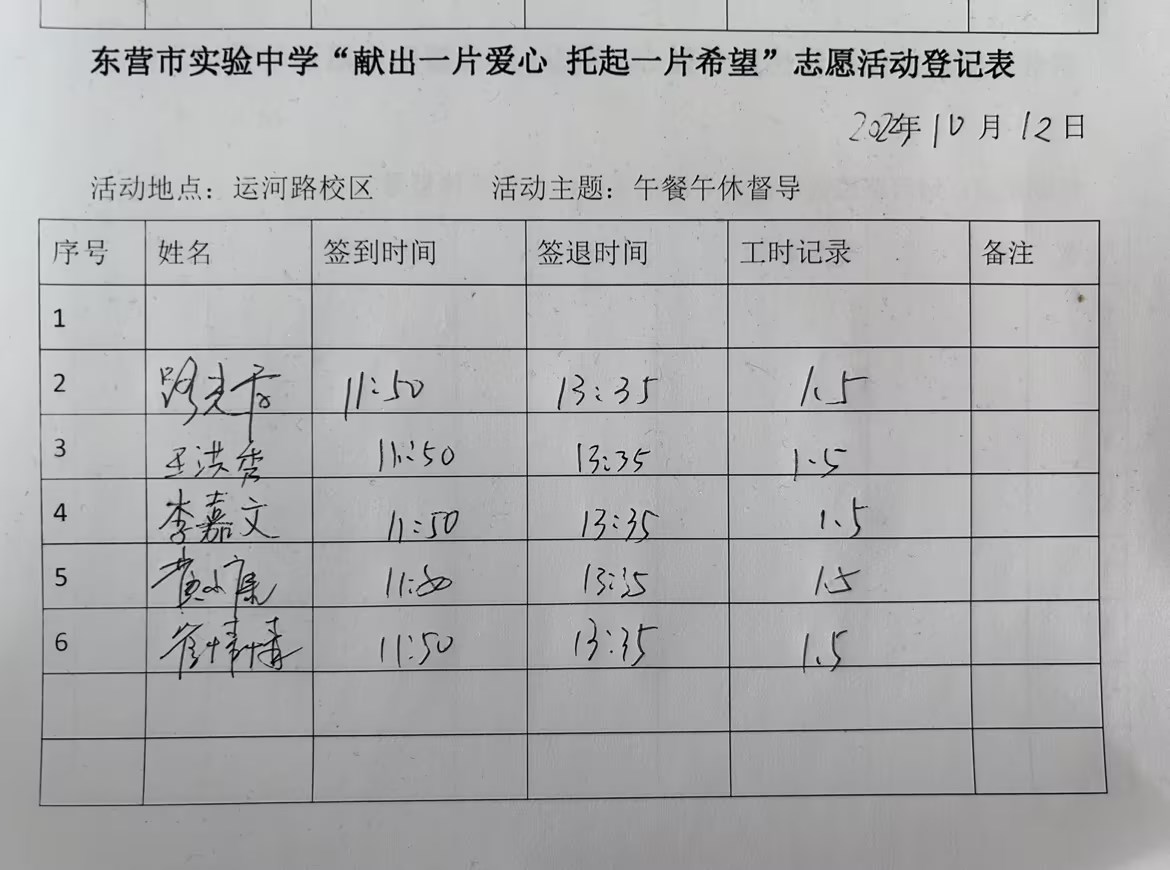 东营市实验中学“献出一片爱心 托起一片希望”志愿活动登记表
年 10 月 12 日
活动地点：运河路校区 活动主题：午餐午休督导
序号 姓名 签到时间 签退时间 工时记录 备注
1
2 11:50 13:35 1.5
3 王洪秀 11:50 13:35 1.5
4 李嘉文 11:50 13:35 1.5
5 11:50 13:35 1.5
6 崔情情 11:50 13:35 1.5